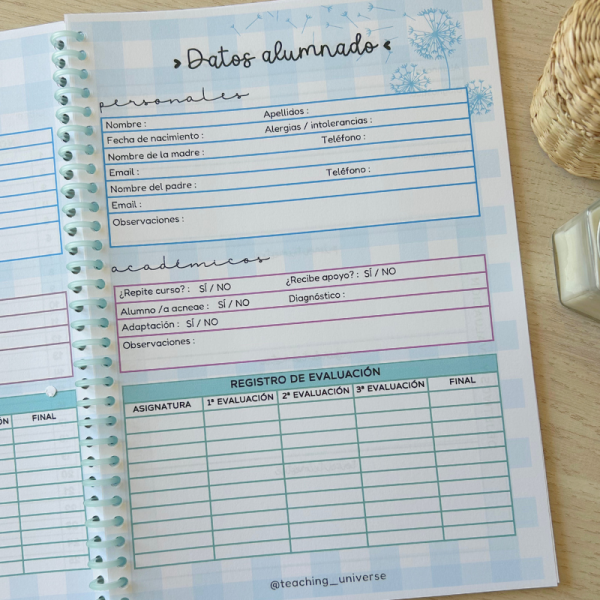 ›Datos alumnado‹
personales
Nombre : Apellidos :
Fecha de nacimiento : Alergias / intolerancias :
Nombre de la madre : Teléfono :
Email :
Nombre del padre : Teléfono :
Email :
Observaciones :
académicos
¿Repite curso? : SÍ / NO ¿Recibe apoyo? : SÍ / NO
Alumno /a acneae : SÍ / NO Diagnóstico :
Adaptación : SÍ / NO
Observaciones :
REGISTRO DE EVALUACIÓN
ASIGNATURA 1ª EVALUACIÓN 2ª EVALUACIÓN 3ª EVALUACIÓN FINAL
FINAL
@teaching_universe